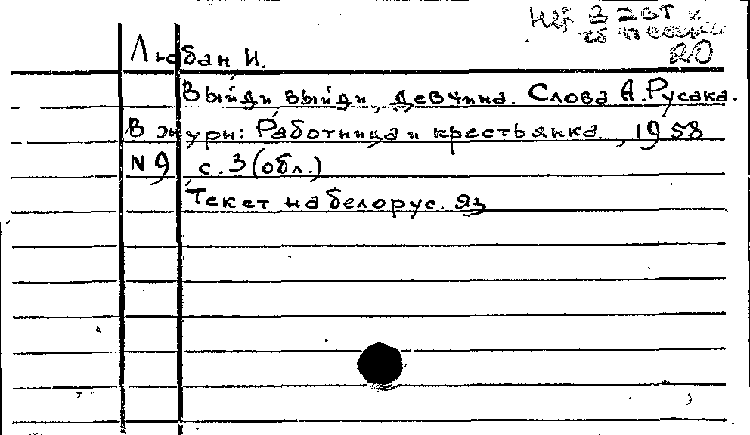 20
Любан И.
Выйди выйди, девчина. Слова А. Русака.
В журн: Работница и крестьянка, 1958
N 9 с. 3 (обл.)
Текст на белорус. яз